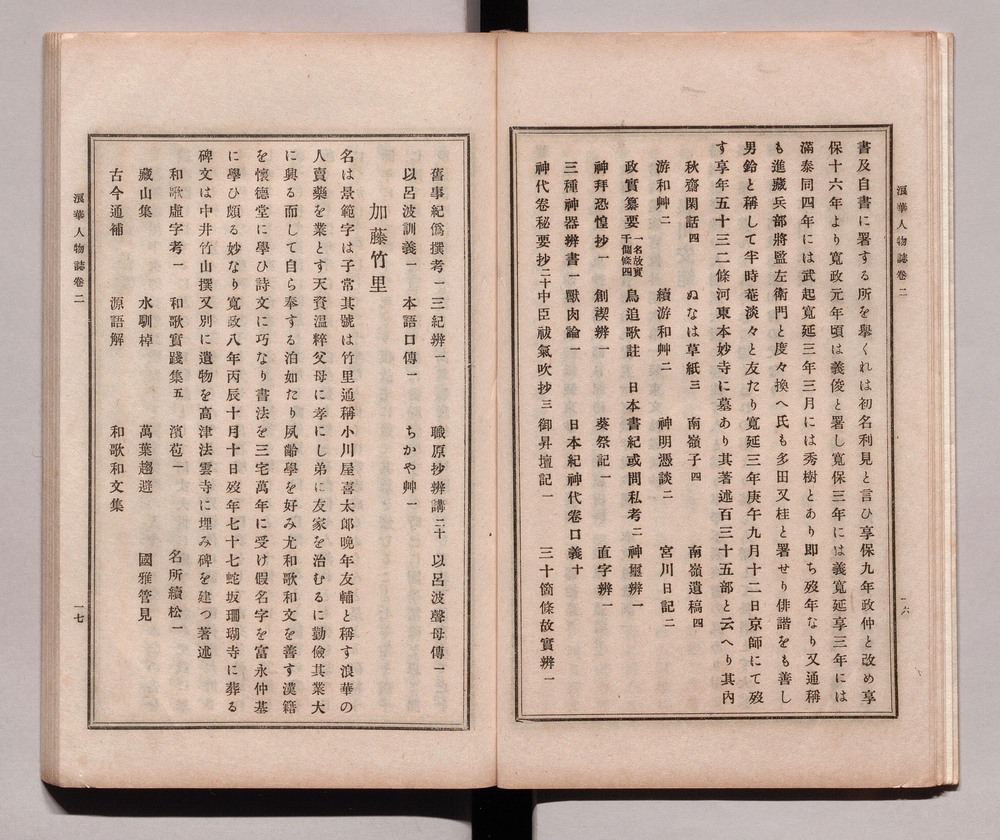 浪華人物誌卷二
一六
書及自書に署する所を擧くれは初名利見と言ひ享保九年政仲と改め享
保十六年より寬政元年頃は義俊と署し寬保三年には義寬延享三年には
滿泰同四年には武起寬延三年三月には秀樹とあり即ち歿年なり又通稱
も進藏兵部將監左衛門と度々換へ氏も多田又桂と署せり俳諧をも善し
男鈴と稱して半時菴淡々と友たり寬延三年庚午九月十二日京師にて歿
す享年五十三二條河東本妙寺に墓あり其著述百三十五部と云へり其內
秋齋閑話四　ぬなは草紙三　南嶺子四　南嶺遺稿四
游和艸二　續游和艸二　神明憑談二　宮川日記二
政實纂要一名故實千個條四　鳥追歌註　日本書紀或問私考二　神璽辨一
神拜恐惶抄一　創禊辨一　葵祭記一　直字辨一
三種神器辨書一　獸肉論一　日本紀神代卷口義十
神代卷秘要抄二十　中臣祓氣吹抄三　御昇壇記一　三十箇條故實辨一
舊事紀僞撰考一　三紀辨一　職原抄辨講二十　以呂波聲母傳一
以呂波訓義一　本語口傳一　ちかや艸一
加藤竹里
名は景範字は子常其號は竹里通稱小川屋喜太郎晩年友輔と稱す浪華の
人賣藥を業とす天資温粹父母に孝にし弟に友家を治むるに勤儉其業大
に興る而して自ら奉する泊如たり夙齡學を好み尤和歌和文を善す漢籍
を懷德堂に學ひ詩文に巧なり書法を三宅萬年に受け假名字を富永仲基
に學ひ頗る妙なり寬政八年丙辰十月十日歿年七十七蛇坂珊瑚寺に葬る
碑文は中井竹山撰又別に遺物を高津法雲寺に埋み碑を建つ著述
和歌虛字考一　和歌實踐集五　濱苞一　名所續松一
藏山集　水馴棹　萬葉趨避　國雅管見
古今通補　源語解　和歌和文集
浪華人物誌卷二
一七